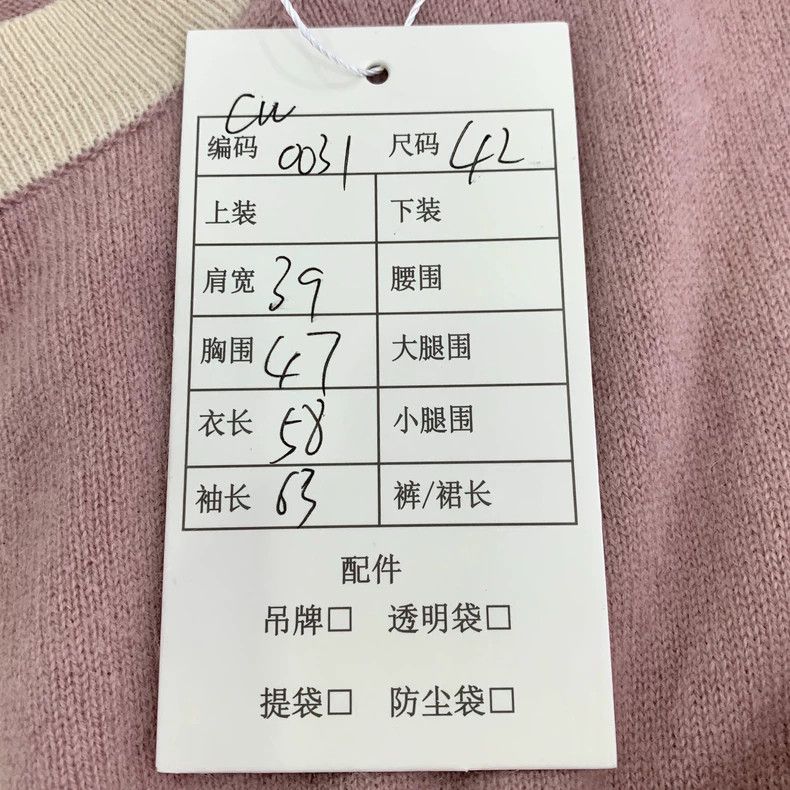 CW
编码 0031 尺码 42
上装 下装
肩宽 39 腰围
胸围 47 大腿围
衣长 58 小腿围
袖长 63 裤/裙长
配件
吊牌□ 透明袋□
提袋□ 防尘袋□